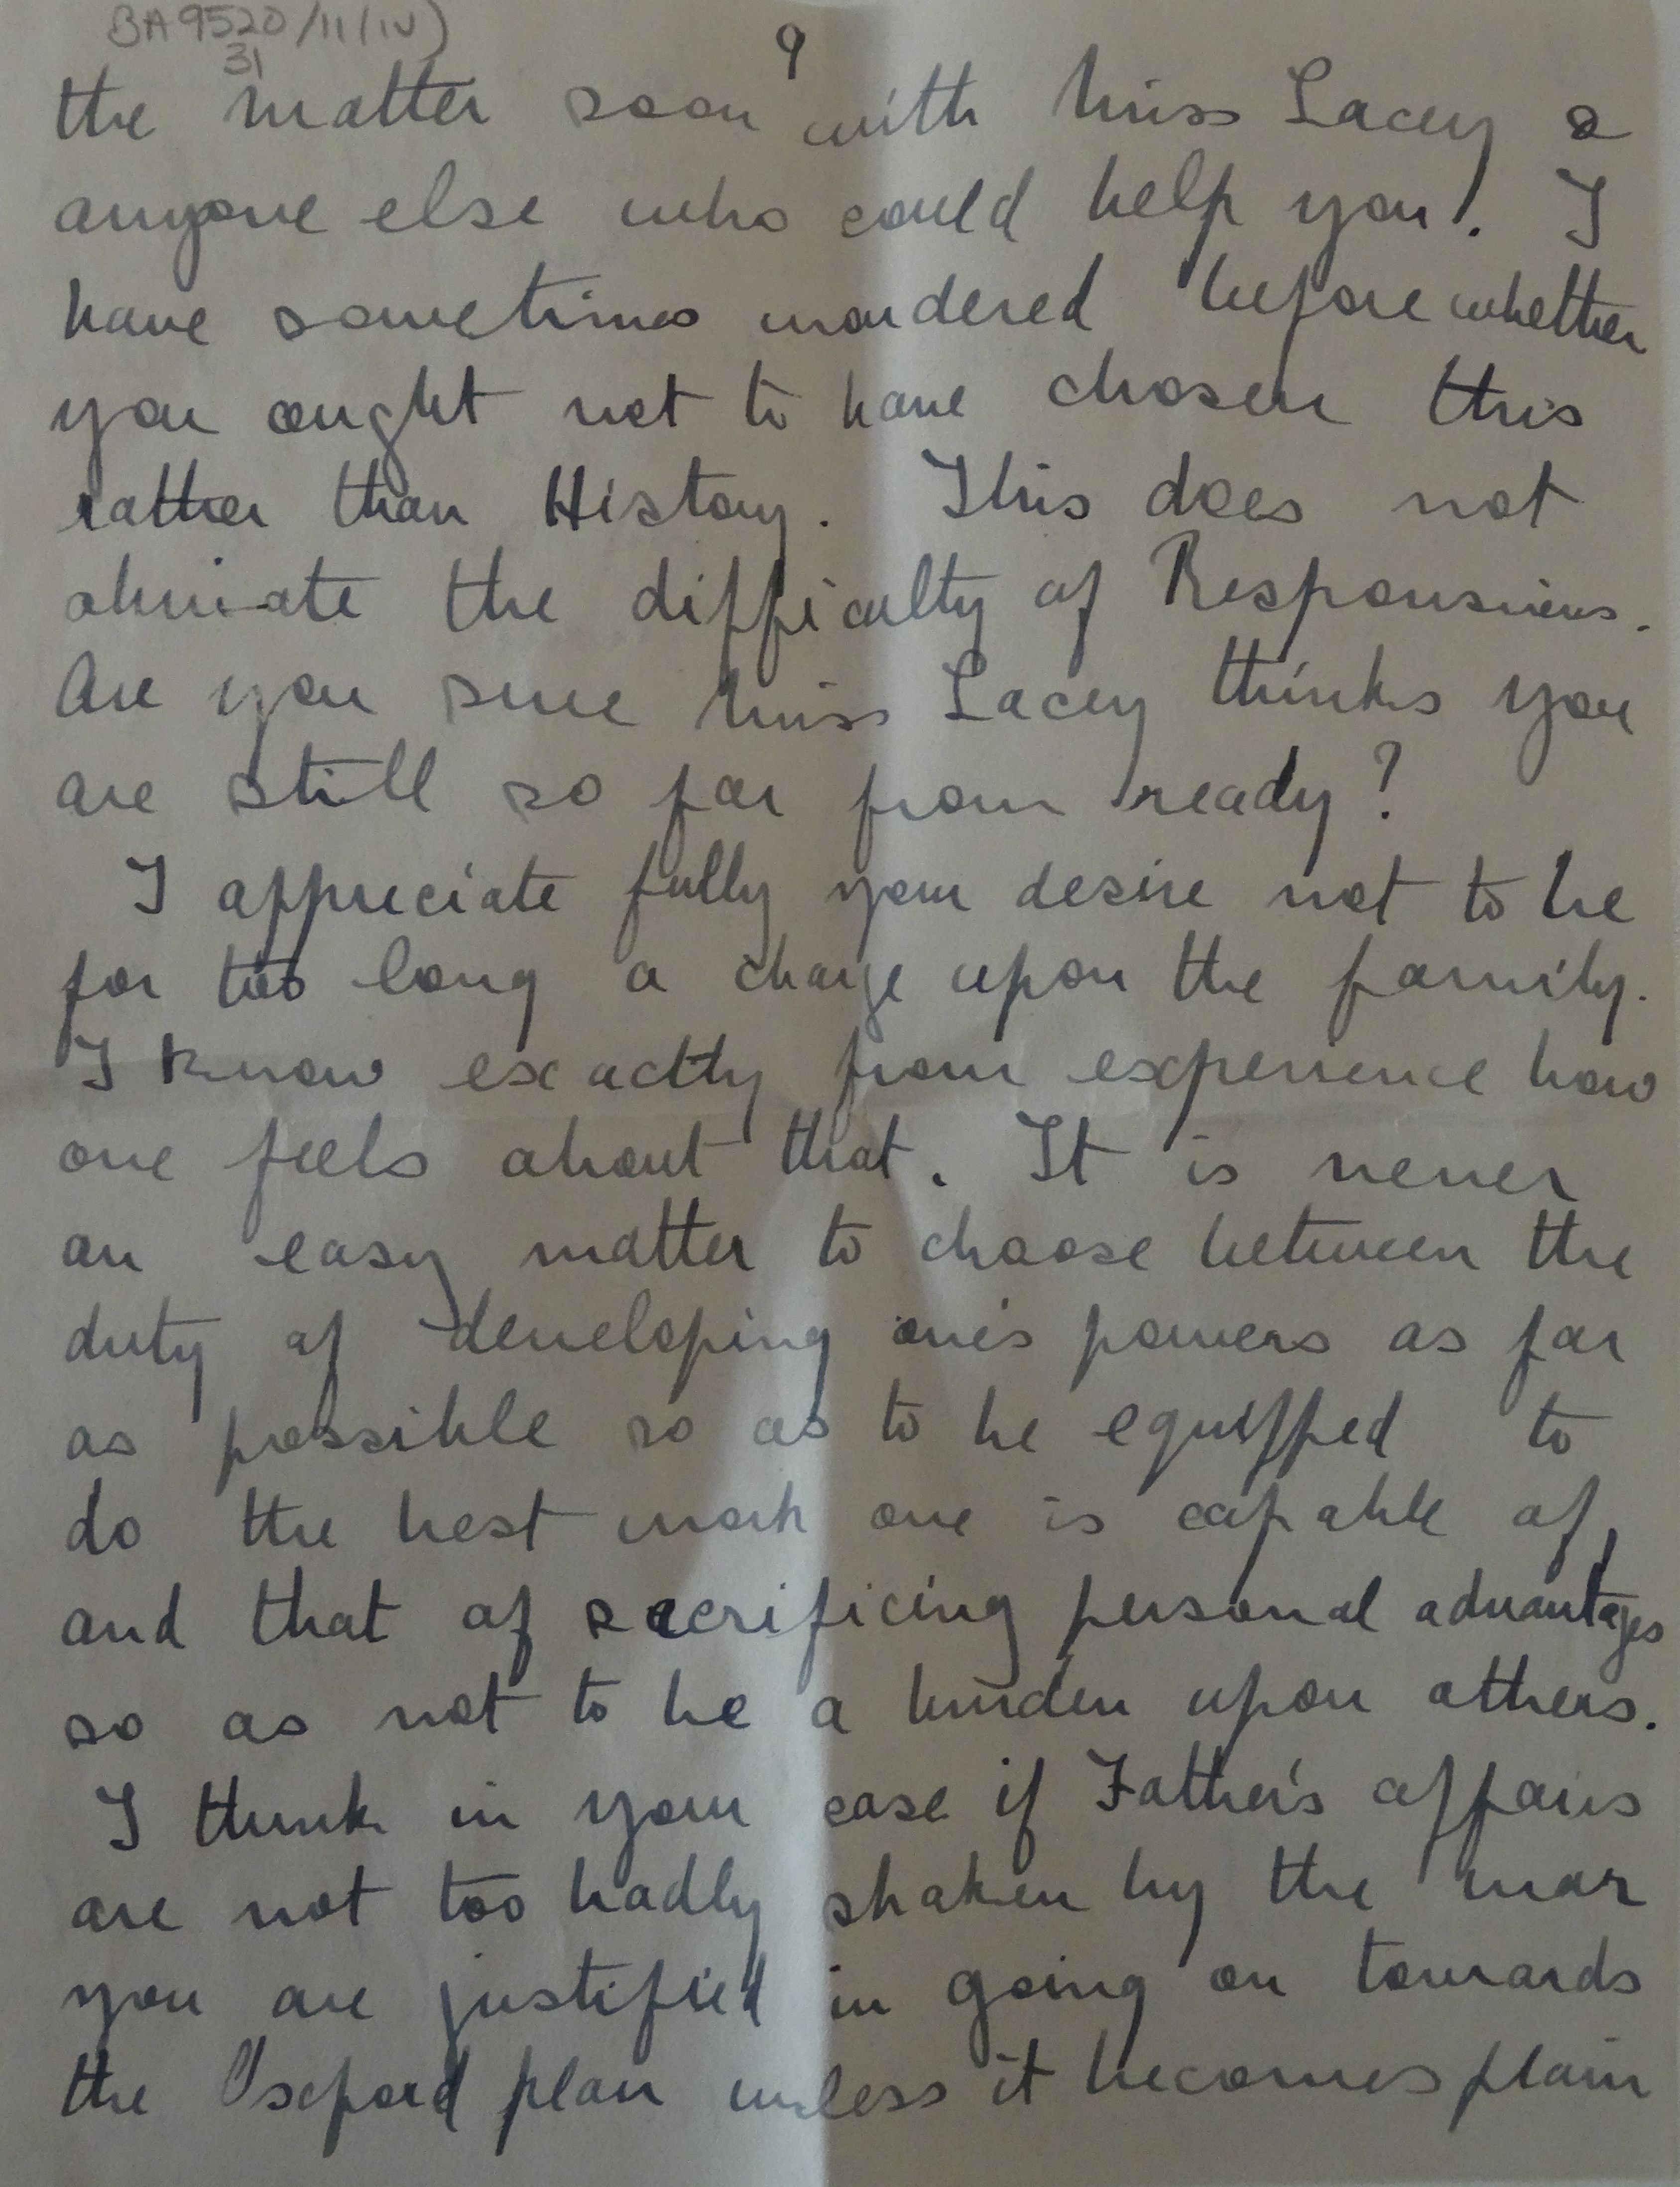 BA9520/11(iv)
31
9
the matter soon with Miss Lacey &
anyone else who could help you. I
have sometimes wondered before whether
you ought not to have chosen this
rather than History. This does not
obviate the difficulty of Responsions.
Are you sure Miss Lacey thinks you
are still so far from ready?
I appreciate fully your desire not to be
for too long a charge upon the family.
I know exactly from experience how
one feels about that. It is never
an easy matter to choose between the
duty of developing one's powers as far
as possible so as to be equipped to
do the best work one is capable of,
and that of sacrificing personal advantages
so as not to be a burden upon others.
I think in your case if Father's affairs
are not too badly shaken by the war
you are justified in going on towards
the Oxford plan unless it becomes plain